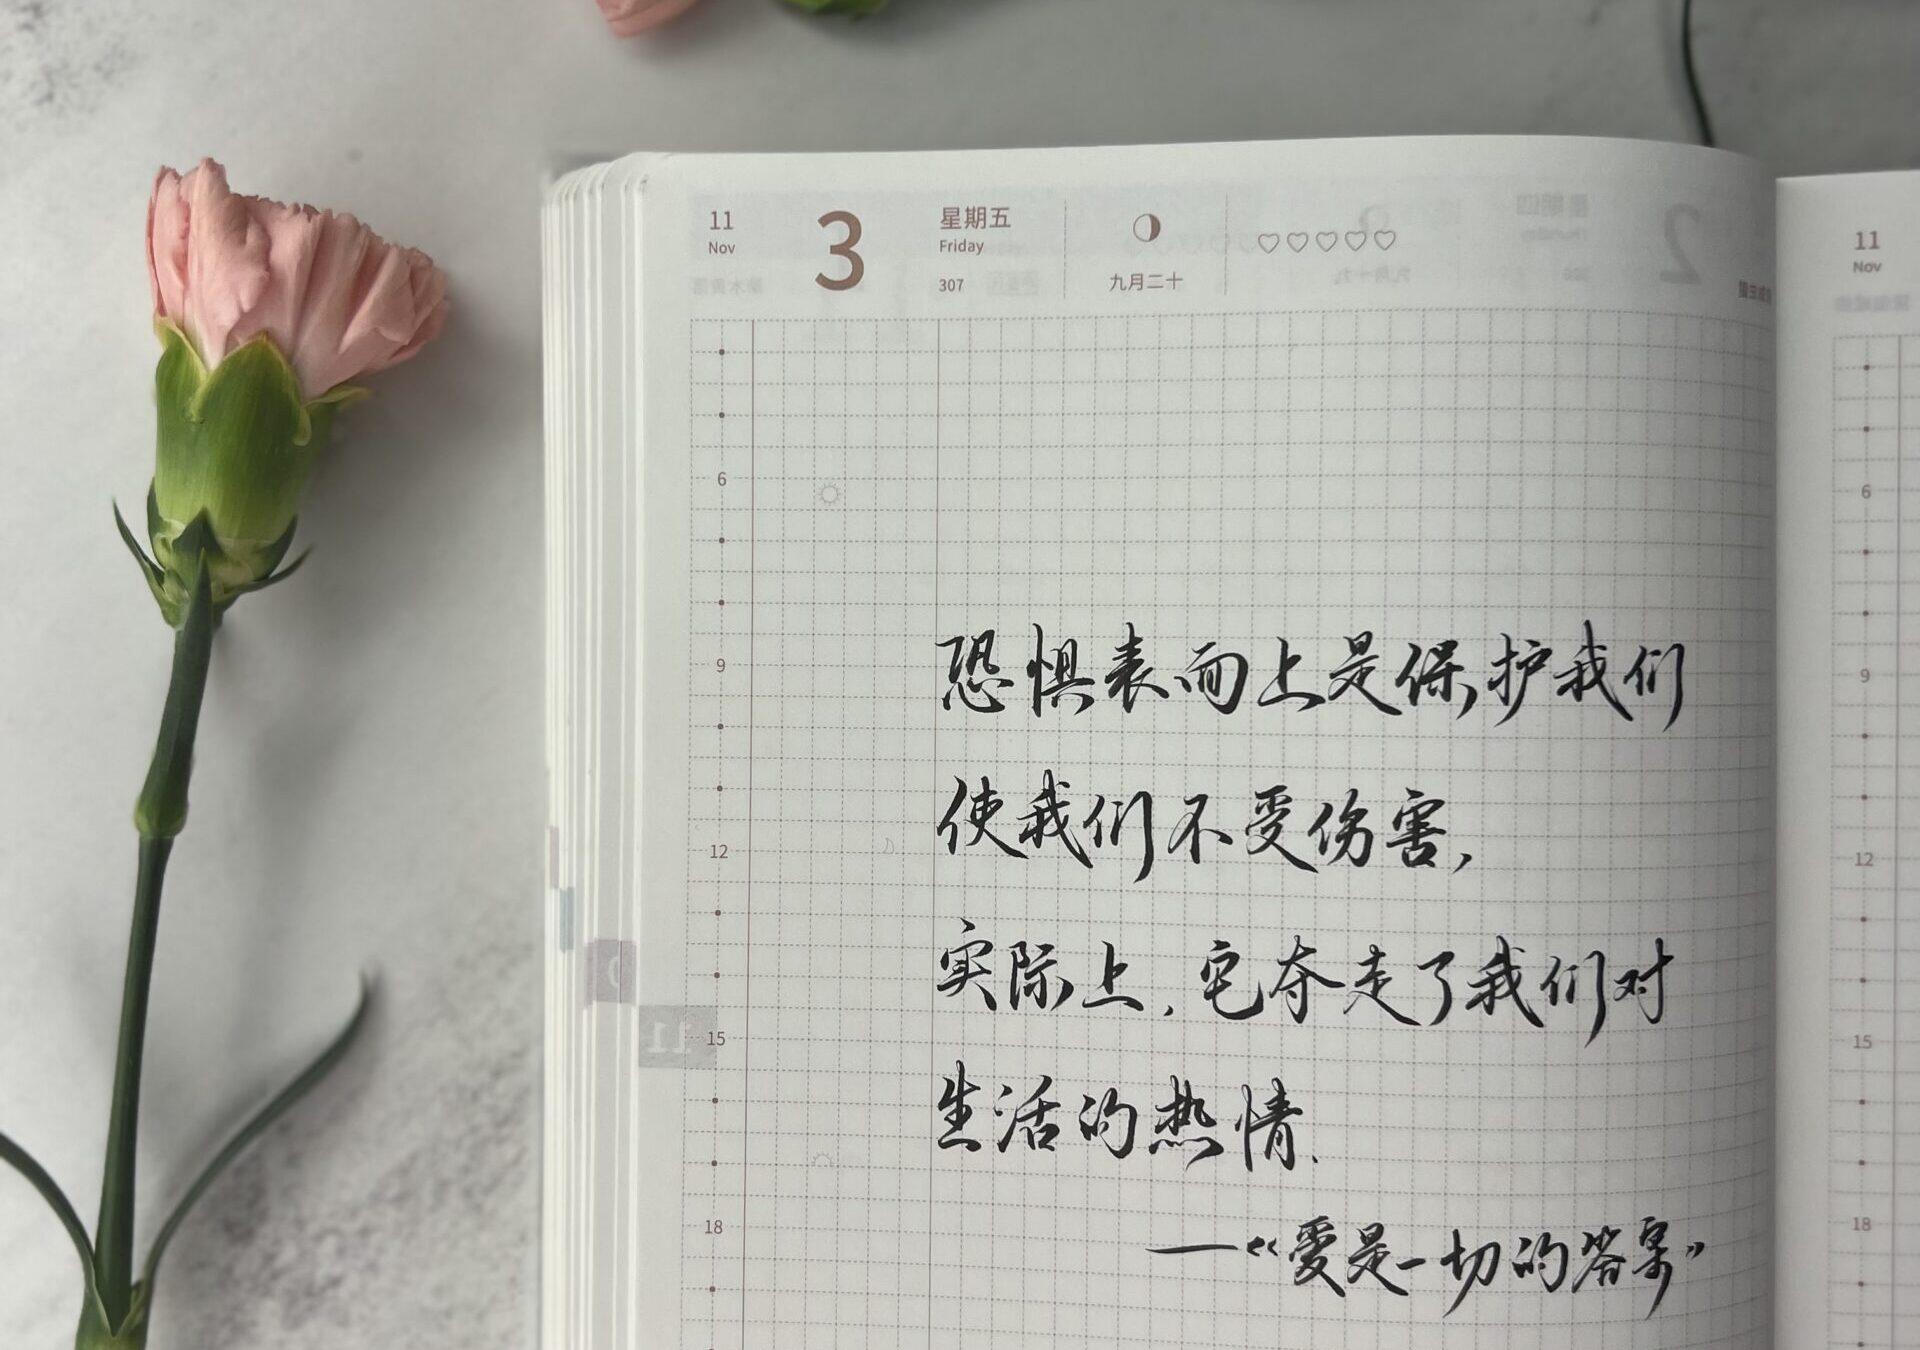 11
Nov
3
星期五
Friday
307
九月二十
11
Nov
6
9
12
15
18
6
9
12
15
18
恐惧表面上是保护我们
使我们不受伤害,
实际上,它夺走了我们对
生活的热情.
—“爱是一切的答案”